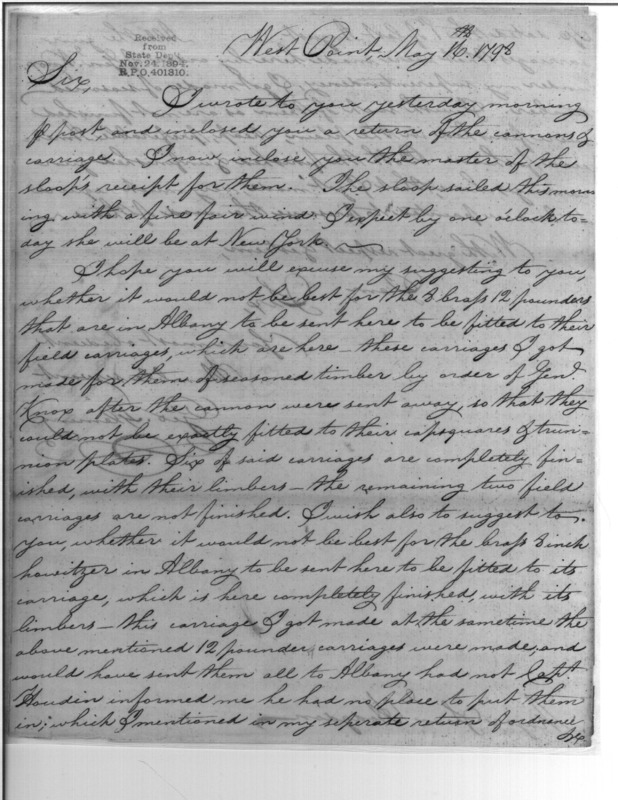 Received
from
State Dept
Nov. 24, 1894.
R.P.O. 401310.
West Point, May 16th. 1798
Sir,
I wrote to you yesterday morning
post, and inclosed you a return of the cannons &
carriage. I now inclose you the master of the
sloop's receipt for them. The sloop sailed this morn
ing with a fine fair wind I expect by one o'clock to=
day she will be at New York
I hope you will excuse my suggesting to you,
whether it would not be best for the 8 brass 12 pounders
that are in Albany to be sent here to be fitted to their
field carriages, which are here – these carriages I got
made for them of seasoned timber by order of Genl.
Knox after the cannon were sent away, so that they
could not be exactly fitted to their capsquares & trun=
nion plates. Six of said carriages are completely fin=
ished, with their limbers – the remaining two field
carriages are not finished. I wish also to suggest to
you, whether it would not be best for the brass 8 inch
howitzer in Albany to be sent here to be fitted to its
carriage, which is here completely finished, with its
limbers – this carriage I got made at the sametime the
above mentioned 12 pounder carriages were made, and
would have sent them all to Albany had not Capt.
Houdin informed me he had no place to put them
in; which I mentioned in my seperate return of ordnance
&c